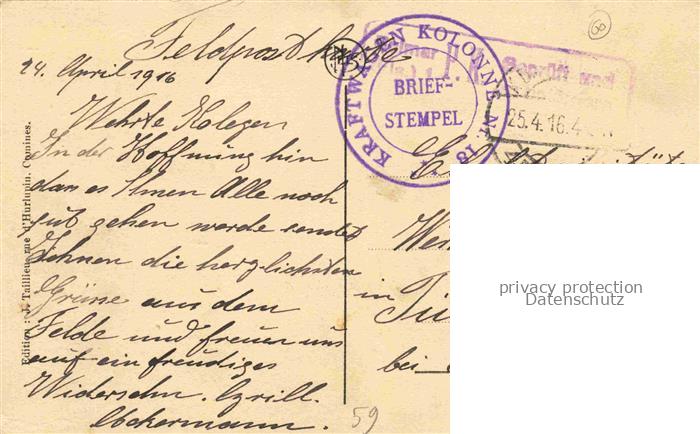 Feldpostkarte
24. April 1916
Wehrte Kolegen
In der Hoffnung hin
das es Ihnen Alle noch
gut gehen werde sendet
Ihnen die herzlichsten
Grüne aus dem
Felde und freuen uns
auf ein freudiges
Widersehn. Cyrill.
Ackermann.
Edition : J. Taillieu, rue d'Hurlupin, Comines.
KRAFTWAGEN KOLONNE Nr. 18
BRIEF-
STEMPEL
Geprüft und
25.4.16.4
8
in
bei
59
privacy protection
Datenschutz